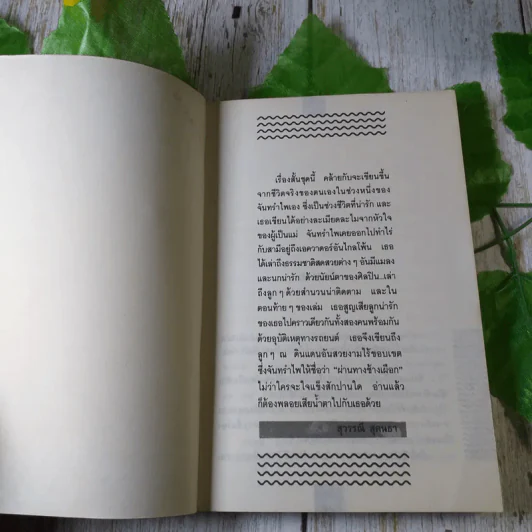 เรื่องสั้นชุดนี้ คล้ายกับจะเขียนขึ้น
จากชีวิตจริงของตนเองในช่วงหนึ่งของ
จันทรำไพเอง ซึ่งเป็นช่วงชีวิตที่น่ารัก และ
เธอเขียนได้อย่างละเมียดละไมจากหัวใจ
ของผู้เป็นแม่ จันทรำไพเคยออกไปทำไร่
กับสามีอยู่ถึงเอควาดอร์อันไกลโพ้น เธอ
ได้เล่าถึงธรรมชาติสดสวยต่าง ๆ อันมีแมลง
และนกน่ารัก ด้วยนัยน์ตาของศิลปิน..เล่า
ถึงลูก ๆ ด้วยสำนวนน่าติดตาม และใน
ตอนท้าย ๆ ของเล่ม เธอสูญเสียลูกน่ารัก
ของเธอไปคราวเดียวกันทั้งสองคนพร้อมกัน
ด้วยอุบัติเหตุทางรถยนต์ เธอจึงเขียนถึง
ลูก ๆ ณ ดินแดนอันสวยงามไร้ขอบเขต
ซึ่งจันทรำไพให้ชื่อว่า “ผ่านทางช้างเผือก”
ไม่ว่าใครจะใจแข็งสักปานใด อ่านแล้ว
ก็ต้องพลอยเสียน้ำตาไปกับเธอด้วย
สุวรรณี สุคนธา